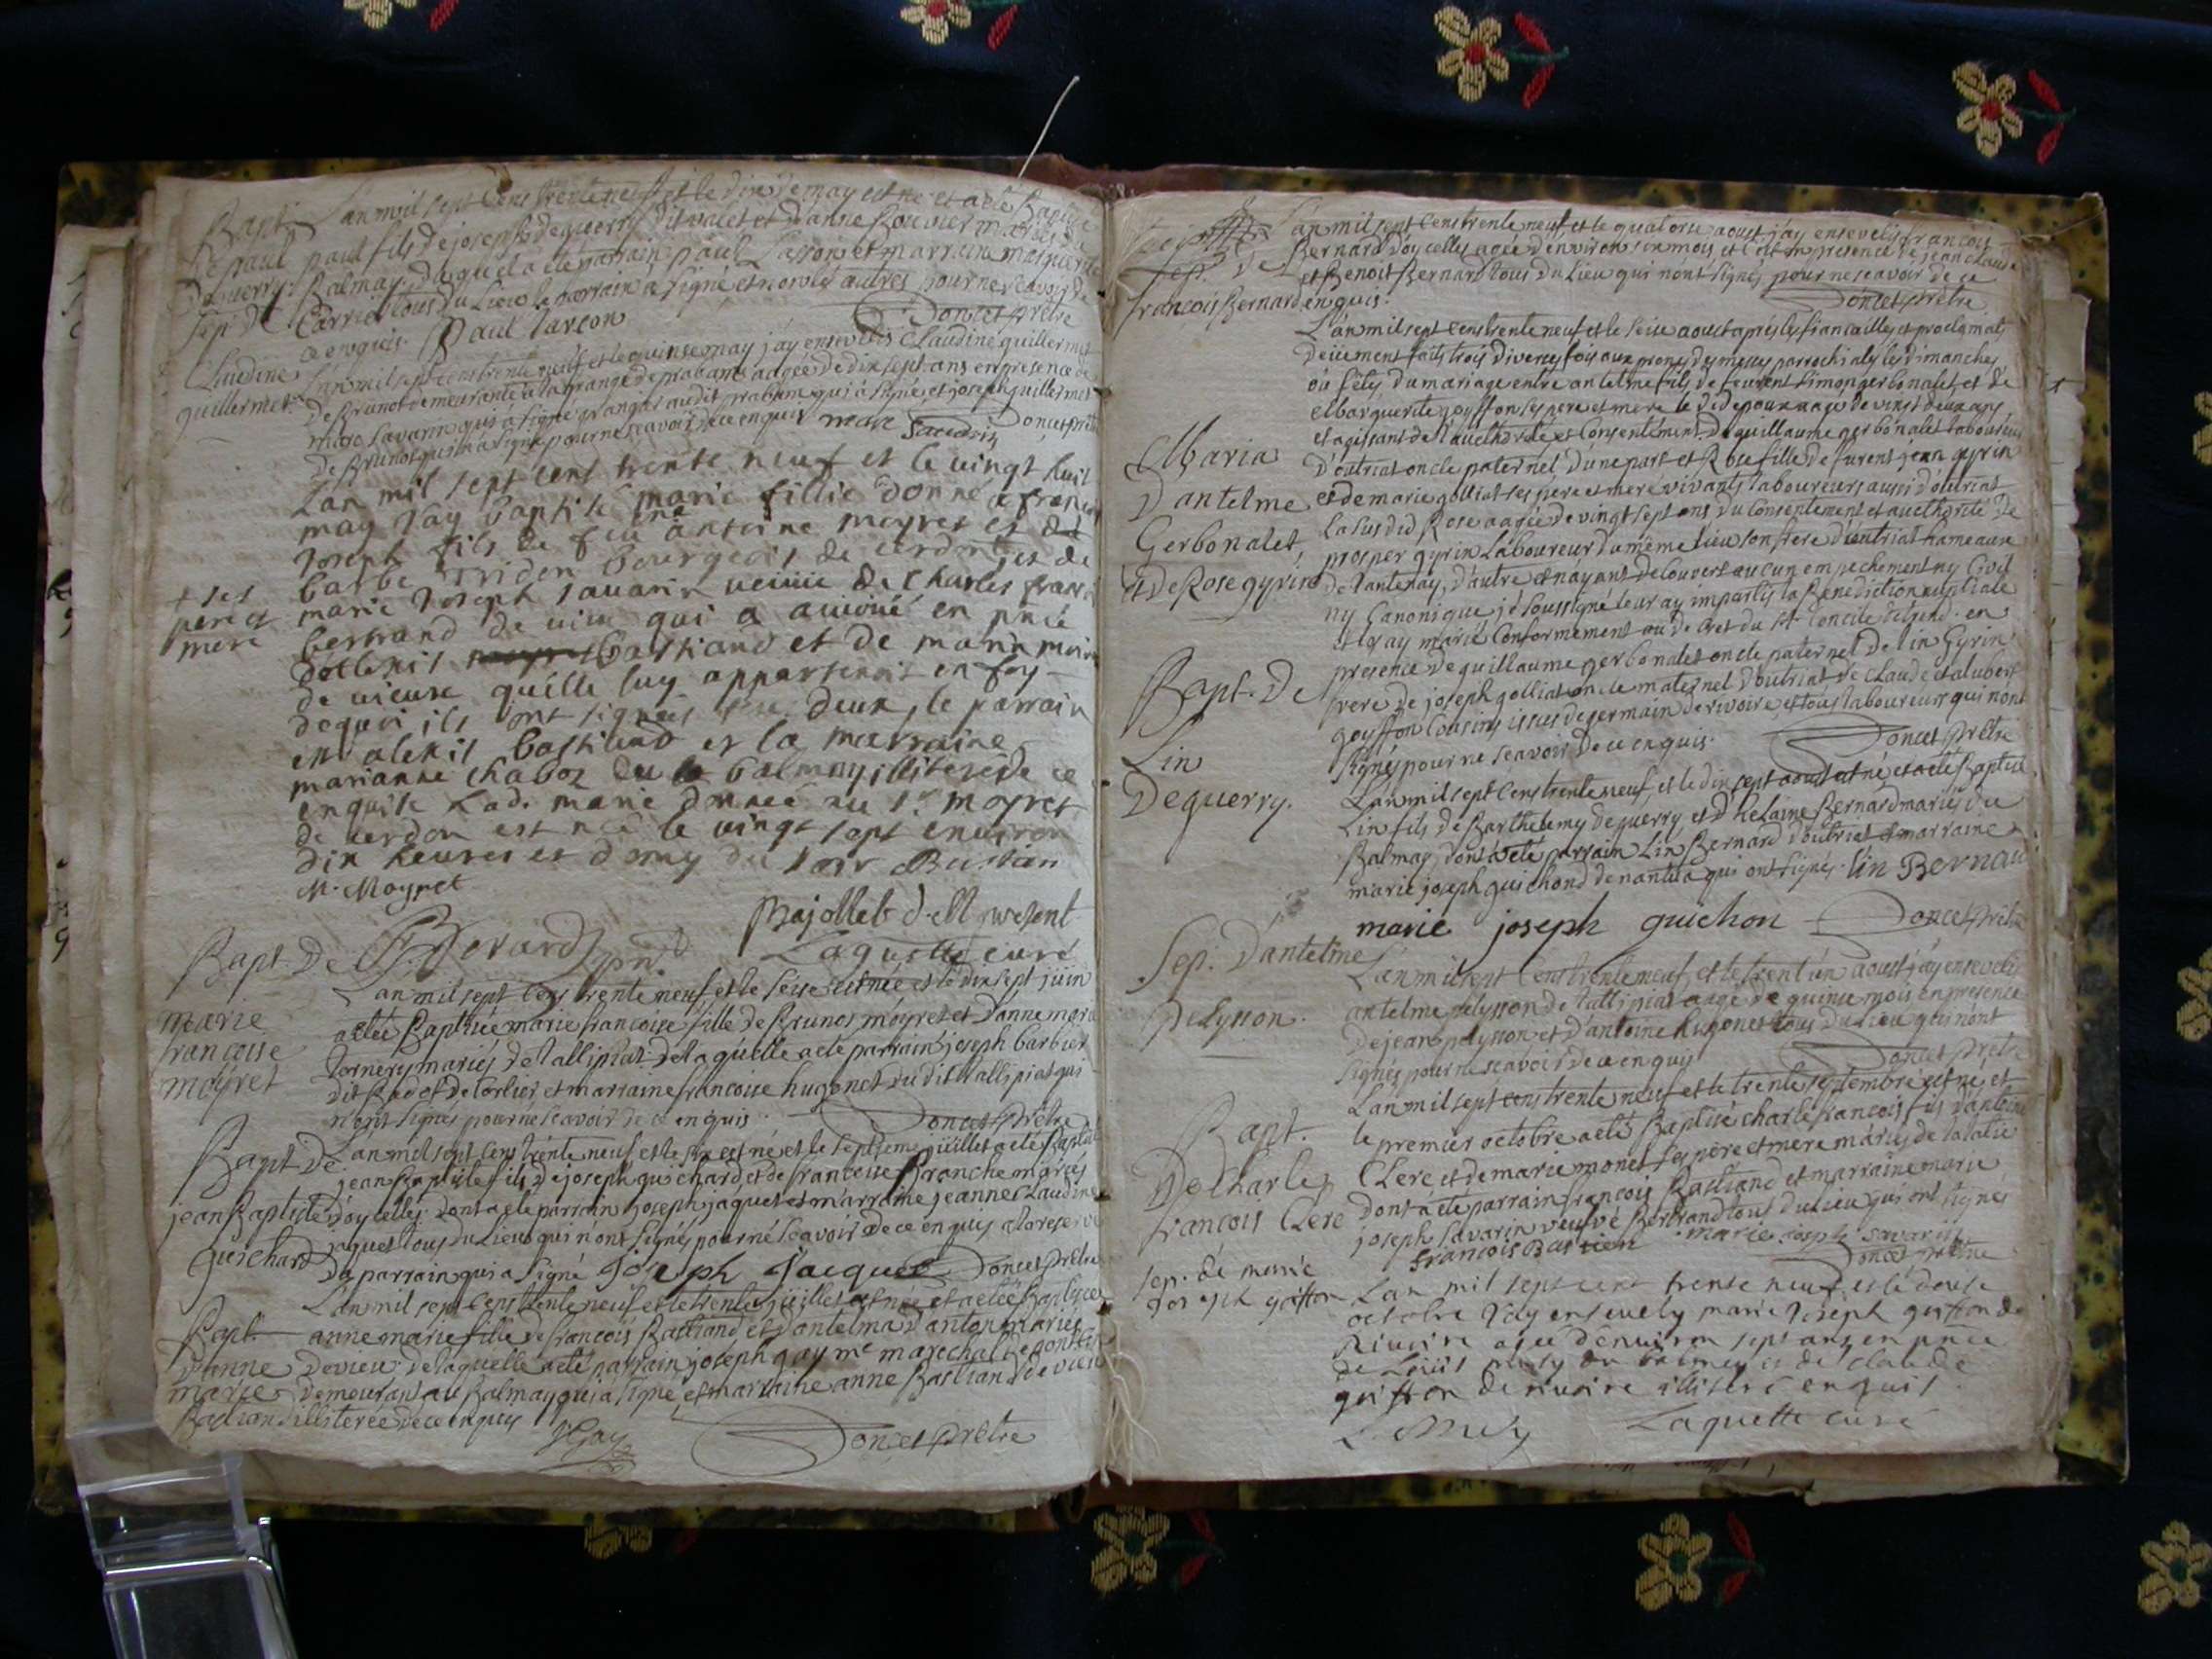 Bapt. L'an mil sept cens trente neuf et le dix de may est né et a eté Baptisé
De paul paul fils de joseph dequerry dit valet et d'anne Bouvier mariés du
Dequerry. Balmay. duquel a eté parrain paul Larson et marraine marguerite
Carrier tous du Lieu le parrain a signé et non les autres pour ne scavoir de
ce enquis. Paul Larcon Doncet prêtre
Sep. de
Claudine
guillermet.
L'an mil sept cens trente neuf et le quinse may jay enseveli Claudine guillermet
De Brunot demeurante a la grange de prabam aagée de dix sept ans en presence de
marc Savarin qui a signé granger audit prabam qui a signé et joseph guillermet
De Brunot qui n'a signé pour ne scavoir de ce enquis marc Savarin Doncet prêtre
Lan mil sept cent trente neuf et le vingt huit
may Jay baptisé marie fillie donné a francois
Joseph fils de feu antoine moyret et de
barbe triden bourgeois de cerdon et de
marie Joseph savarin veuve de Charles francois
+ ses
pere et
mere
bertrand de vieu qui a avoué en pnce
dallexis bastiand et de marie
de vieuse quille luy appartenoit en foy
dequoi ils ont signés deux, le parrain
est alexis bastiand et la marraine
marianne chaboz du balmay illiterée de ce
enquise Lad. marie donnée au Sr moyret
de cerdon est née le vingt sept environ
dix heures et demy du soir Bastian
M. Moyret
Bajollet d. M present
Berard pnt Laquette curé
Bapt. De
marie
francoise
moyret
L'an mil sept cens trente neuf et le seise est née et le dix sept juin
a eté Baptisée marie francoise fille de Brunos moyret et d'anne marie
Tornery mariés de tallipiat. de laquelle a eté parrain joseph barbier
dit Badet de Corlier et marraine francoise hugonet du dit tallipiat qui
n'ont signés pour ne scavoir de ce enquis. Doncet prêtre
Bapt. de
jean Baptiste
guichard
L'an mil sept cens trente neuf et le six est né et le septieme juillet a eté Baptisé
jean Baptiste fils de joseph guichard et de francoise Branche mariés
d'oycelles. dont a eté parrain joseph jaquet et marraine jeanne Claudine
jaquet tous du Lieu qui n'ont signés pour ne scavoir de ce enquis a la reserve
du parrain qui a signé joseph jacquet Doncet prêtre
Bapt.
D'anne
marie
Bastiand
L'an mil sept cens trente neuf et le trente juillet est née et a eté Baptisée
anne marie fille de francois Bastiand et d'antelma danton mariés
De vieu. de laquelle a eté parrain joseph gay me marechal de
demeurant au Balmay qui a signé, et marraine anne Bastiand de vieu
illiterée de ce enquis
JGay Doncet prêtre
Sep. de
francois Bernard
L'an mil sept cens trente neuf, et le quatorse aoust j'ay enseveli francois
Bernard d'oycelles agée d'environ six mois et c'est en presence de jean claude
et Benoit Bernard tous du Lieu qui n'ont signés pour ne scavoir de ce
enquis. Doncet prêtre
Maria
D'antelme
Gerbonalet,
et de Rose gyrin
L'an mil sept cens trente neuf et le seise aoust apres les fiancailles et proclamat.
deüement faits trois diverses fois aux prones des messes parrochiales les dimanches
où fêtes du mariage entre antelme fils de feurent simon gerbonalet et de
Marguerite goyffon ses pere et mere le dd epoux aagé de vingt deux ans
et agissant de l'aucthorité et Consentement de guillaume gerbonalet laboureur
D'outriat oncle paternel d'une part et Rose fille de furent jean gyrin
et de marie golliat ses pere et mere vivants laboureurs aussi d'outriat
la susdd Rose aagée de vingt sept ans du consentement et aucthorité de
prosper gyrin Laboureur du même lieu son frere d'outriat hameaux
de Lantenay, d'autre et n'ayant decouvert aucun empechement ny Civil
ny Canonique, je soussigné leur ay imparti la Benediction nuptiale
et les ay mariés Conformement au decret du St Concile de trend. en
presence de guillaume gerbonalet oncle paternel de lin Gyrin
frere de joseph golliat oncle maternel d'outriat de Claude et alubert
goyffon Cousins issus de germain de rivoire, et tous laboureurs qui n'ont
signés pour ne scavoir de ce enquis. Doncet prêtre
Bapt. De
Lin
Dequerry.
L'an mil sept cens trente neuf, et le dix sept aoust est né et a eté Baptisé
Lin fils de Barthelemy dequerry, et d'helaine Bernard mariés du
Balmay, dont a eté parrain Lin Bernard d'outriat et marraine
marie joseph guichond de nantua qui ont signés. lin Bernau
marie joseph guichon Doncet prêtre
Sep. D'antelme
Pelysson.
L'an mil sept cens trente neuf, et le trent'un aoust j'ay enseveli
antelme pelysson de tallipiat aagé de quinse mois en presence
de jean pelysson et d'antoine hugonet tous du Lieu qui n'ont
signés pour ne scavoir de ce enquis Doncet prêtre
Bapt.
De Charles
francois Clerc
L'an mil sept cens trente neuf et le trente septembre est né, et
le premier octobre a eté Baptisé charle francois fils d'antoine
Clerc et de marie monet ses père et mere mariés de
dont a eté parrain francois Bastiand et marraine marie
joseph Savarin veufve Bertrand tous du Lieu qui ont signés
francois Bastien marie joseph savarin
Doncet prêtre
sep. de marie
joseph goiffon
Lan mil sept cent trente neuf et le douse
octobre Jay ensevely marie Joseph goiffon de
Rivoire agée denviron sept ans en pnce
de Loüis muly du balmey et de claude
goiffon de rivoire illiteré enquis.
L Muly Laquette curé